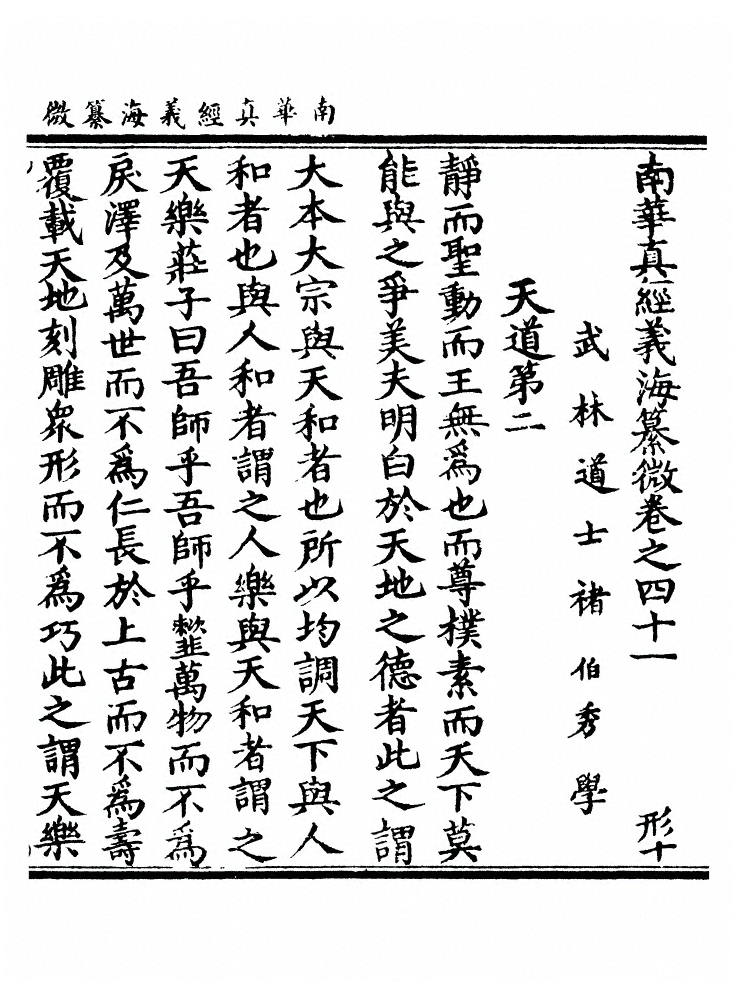 南華真經義海纂微
南華真經義海纂微卷之四十一 形十
武林道士褚伯秀學
天道第二
靜而聖動而王無為也而尊樸素而天下莫
能與之爭美夫明白於天地之德者此之謂
大本大宗與天和者也所以均調天下與人
和者也與人和者謂之人樂與天和者謂之
天樂莊子曰吾師乎吾師乎䪠萬物而不為
戾澤及萬世而不為仁長於上古而不為壽
覆載天地刻雕衆形而不為巧此之謂天樂